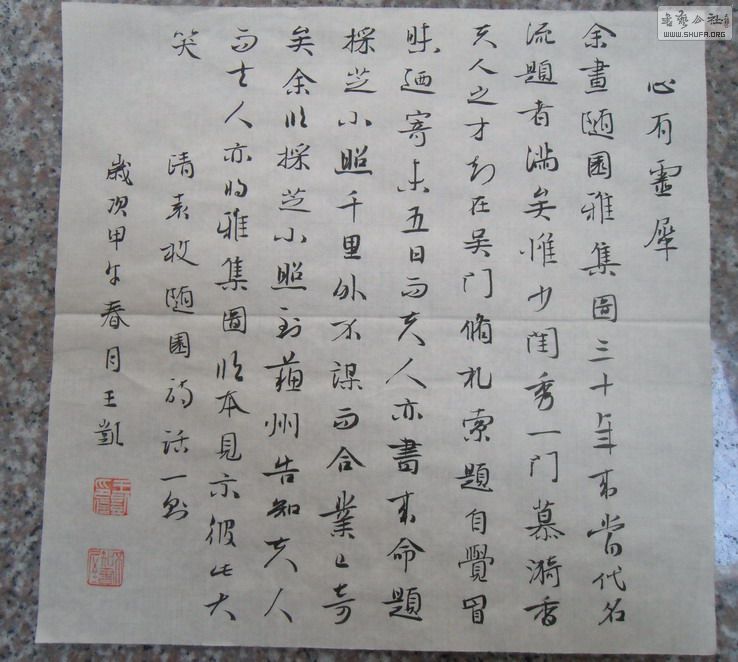 心有靈犀
余畫随園雅集圖三十年来當代名
流題者滿矣惟少閨秀一門慕漪香
夫人之才知在吳門脩札索題自覺冒
昧廼寄未五日而夫人亦書来命題
採芝小照千里外不謀而合業已奇
矣余臨採芝小照到蘇州告知夫人
而夫人亦將雅集圖臨本見示彼此大
笑
清袁枚随園詩話一則
歲次甲午春月王凱
書藝公社
WWW.SHUFA.ORG